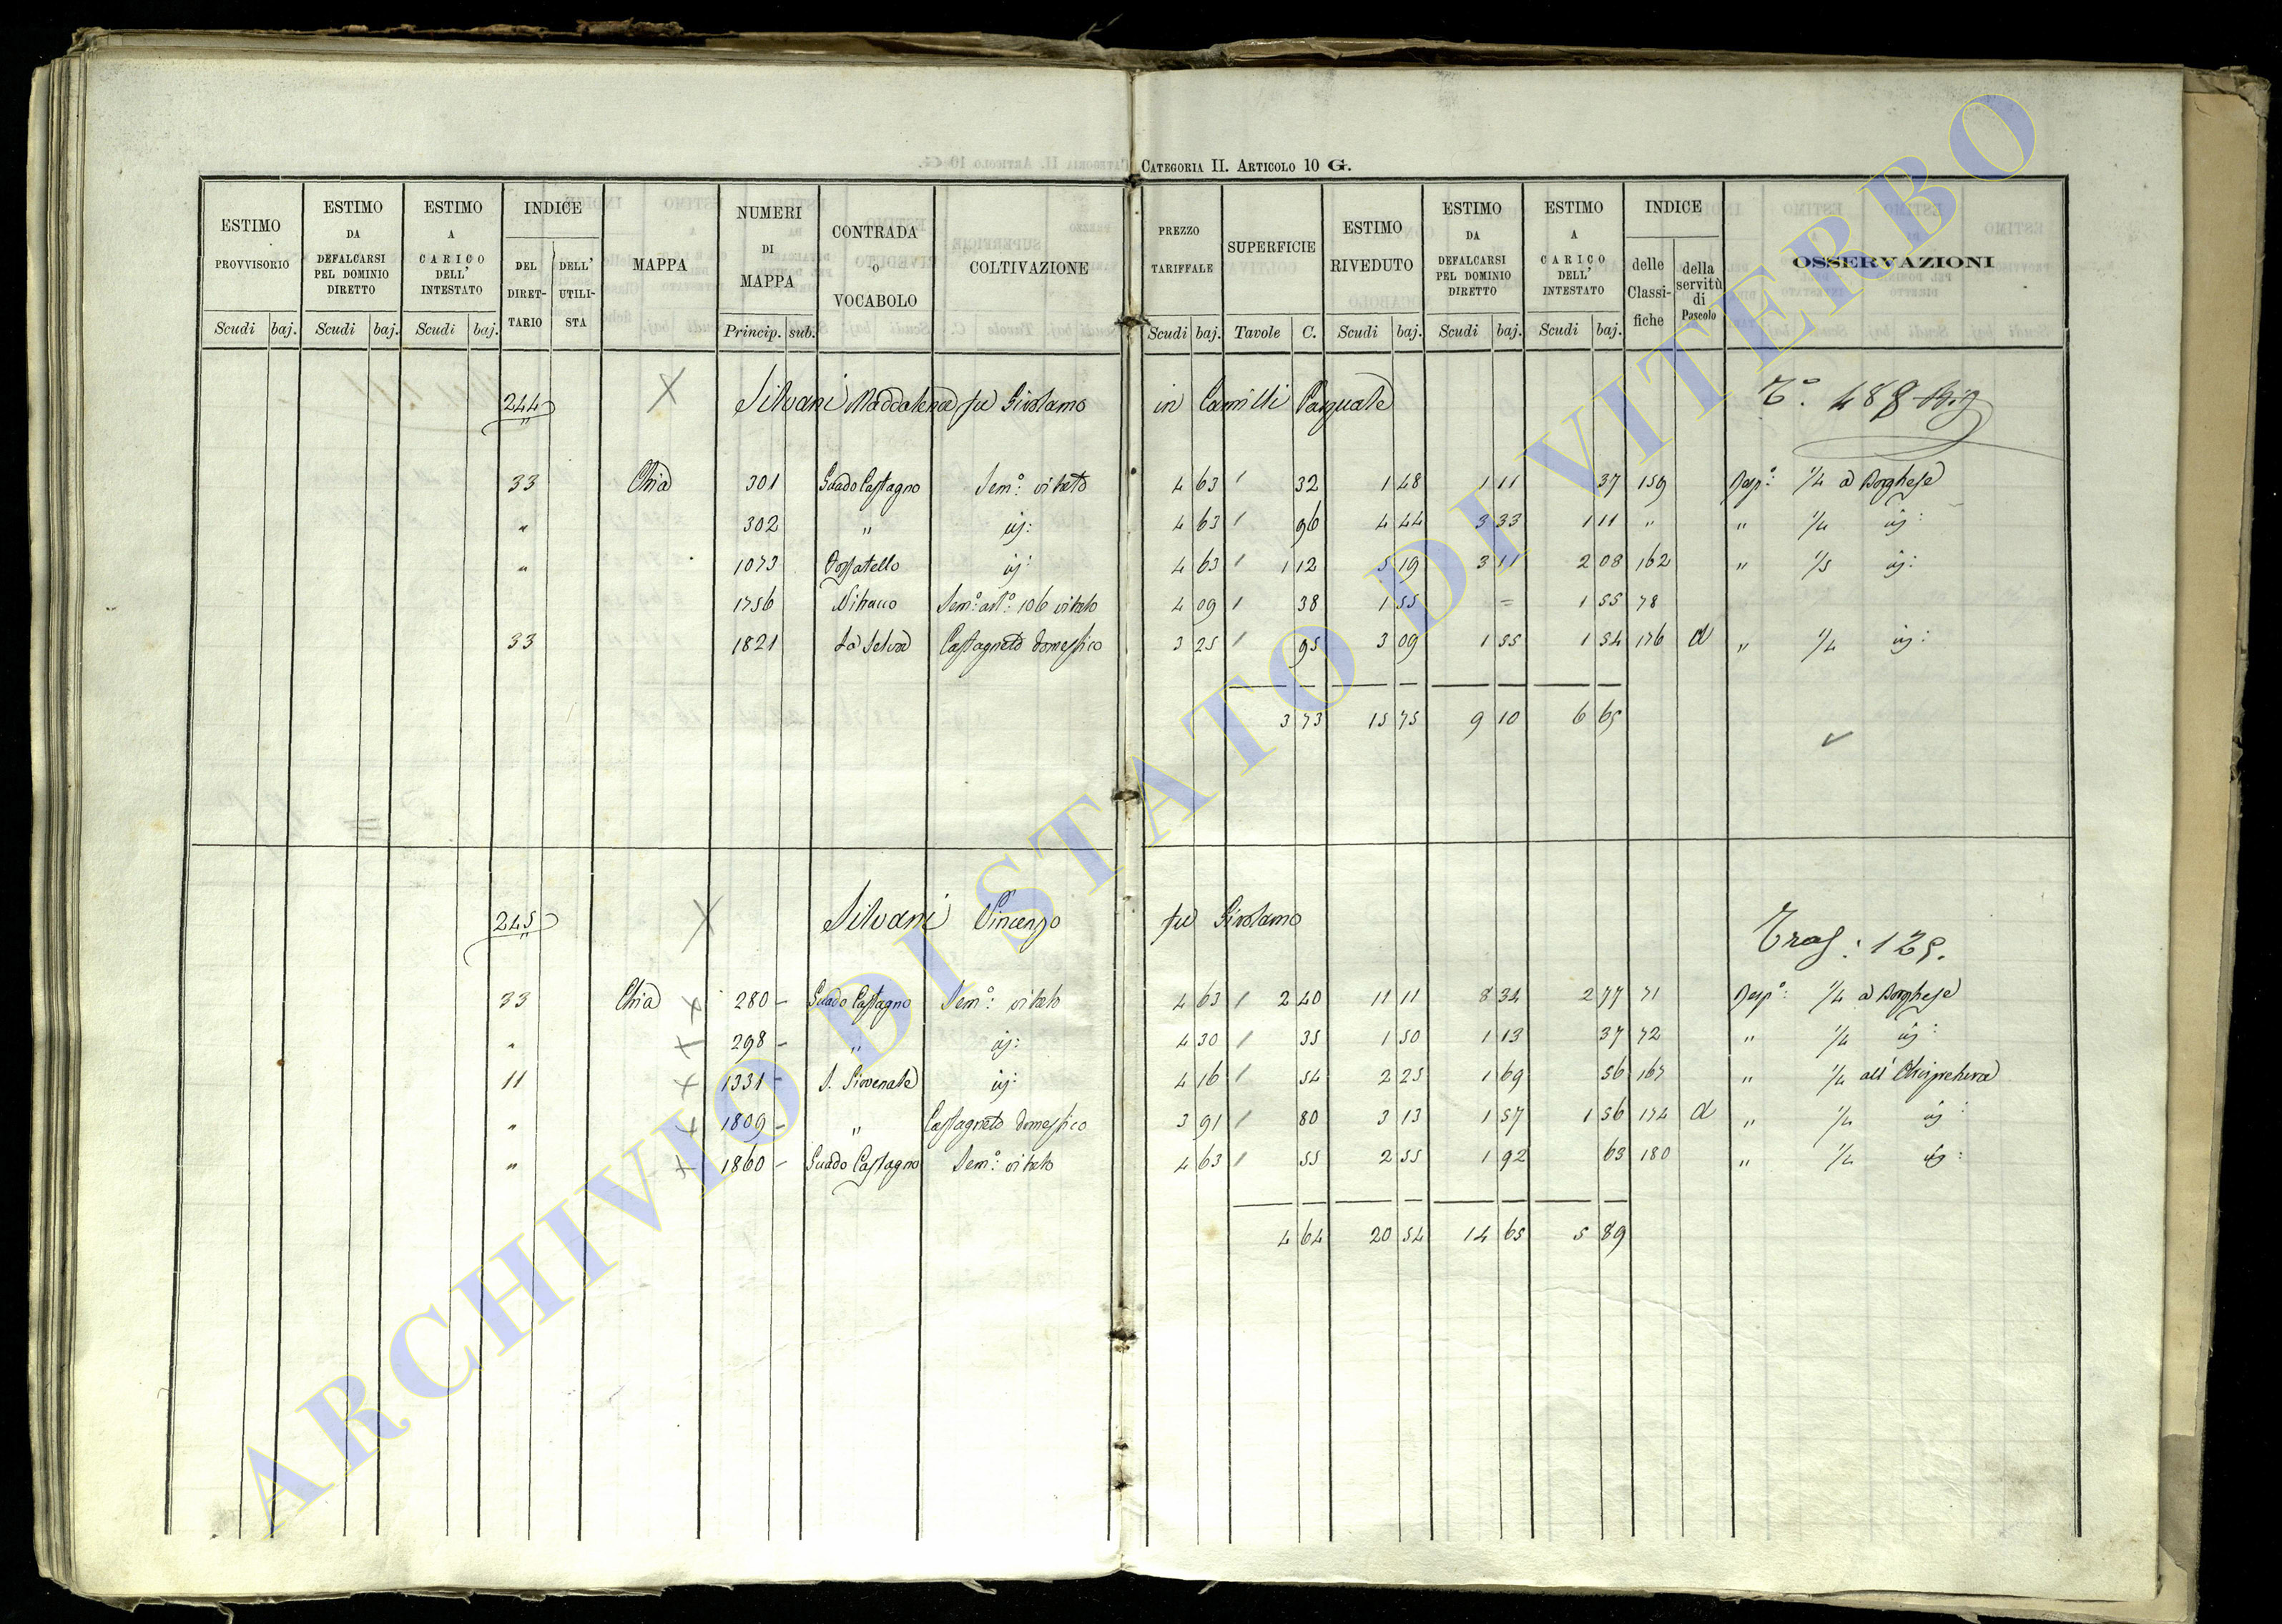 CATEGORIA II. ARTICOLO 10 G.
ESTIMO PROVVISORIO Scudi baj. ESTIMO DA DEFALCARSI PEL DOMINIO DIRETTO Scudi baj. ESTIMO A CARICO DELL' INTESTATO Scudi baj. INDICE DEL DIRET-TARIO DELL' UTILI-STA MAPPA NUMERI DI MAPPA Princip. sub. CONTRADA O VOCABOLO COLTIVAZIONE PREZZO TARIFFALE Scudi baj. SUPERFICIE Tavole C. ESTIMO RIVEDUTO Scudi baj. ESTIMO DA DEFALCARSI PEL DOMINIO DIRETTO Scudi baj. ESTIMO A CARICO DELL' INTESTATO Scudi baj. INDICE delle Classi-fiche della servitù di Pascolo OSSERVAZIONI
244 X Silvani Maddalena fu Girolamo in Camilli Pasquale T.° 488
33 Chia 301 Guado Castagno Sem.° vitato 4 63 / 32 1 48 1 11 37 159 Resp.° 1/4 a Borghese
" 302 " id: 4 63 / 96 4 44 3 33 1 11 " " 1/4 id:
" 1073 Fossatello id: 4 63 / 1 12 5 19 3 11 2 08 162 " 1/5 id:
1756 Sem.° art.° 106 vitato 4 09 / 38 1 55 = 1 55 78
33 1821 La Selva Castagneto domestico 3 25 / 95 3 09 1 55 1 54 176 d " 1/4 id:
3 73 15 75 9 10 6 65
245 X Silvani Vincenzo fu Girolamo Tras: 125.
33 Chia X 280 - Guado Castagno Sem.° vitato 4 63 / 2 40 11 11 8 34 2 77 71 Resp.° 1/4 a Borghese
" X 298 - " id: 4 30 / 35 1 50 1 13 37 72 " 1/4 id:
11 X 1331 - S. Giovenale id: 4 16 / 54 2 25 1 69 56 167 " 1/4 all'
" X 1809 - " Castagneto domestico 3 91 / 80 3 13 1 57 1 56 174 d " 1/4 id:
" X 1860 - Guado Castagno Sem.° vitato 4 63 / 55 2 55 1 92 63 180 " 1/4 id:
4 64 20 54 14 65 5 89
ARCHIVIO DI STATO DI VITERBO